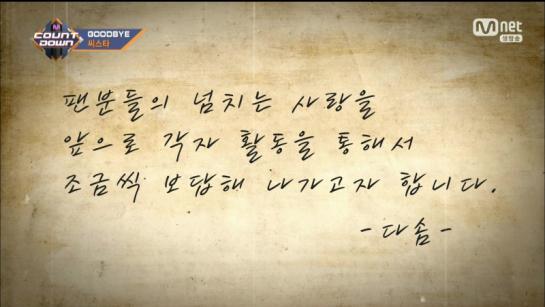 M
COUNT
DOWN
GOODBYE
씨스타
Mnet
생방송
팬분들의 넘치는 사랑을
앞으로 각자 활동을 통해서
조금씩 보답해 나가고자 합니다.
-다솜-